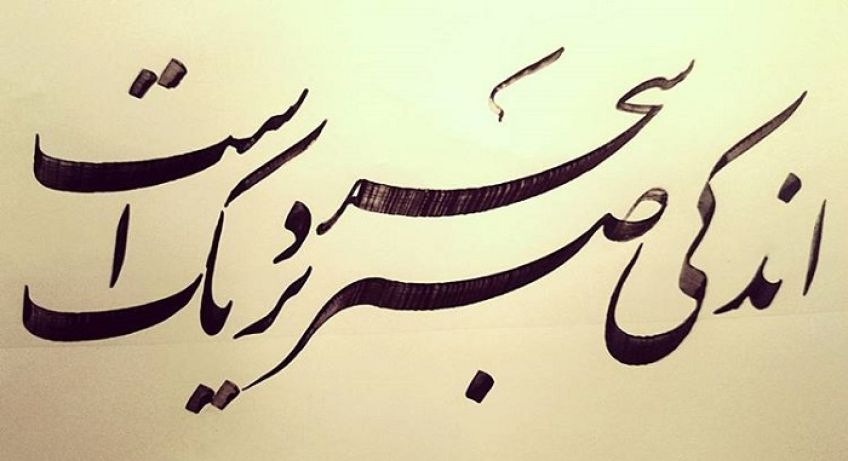 اندکی صبر سحر نزدیک است